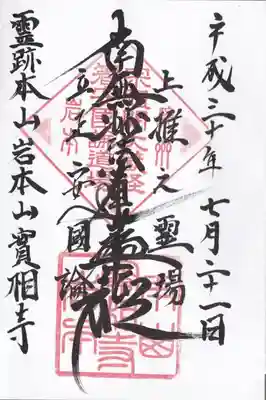 平成三十年 七月二十一日
上之靈場
南無妙法蓮華経
立正安國論
靈跡本山 岩本山 實相寺